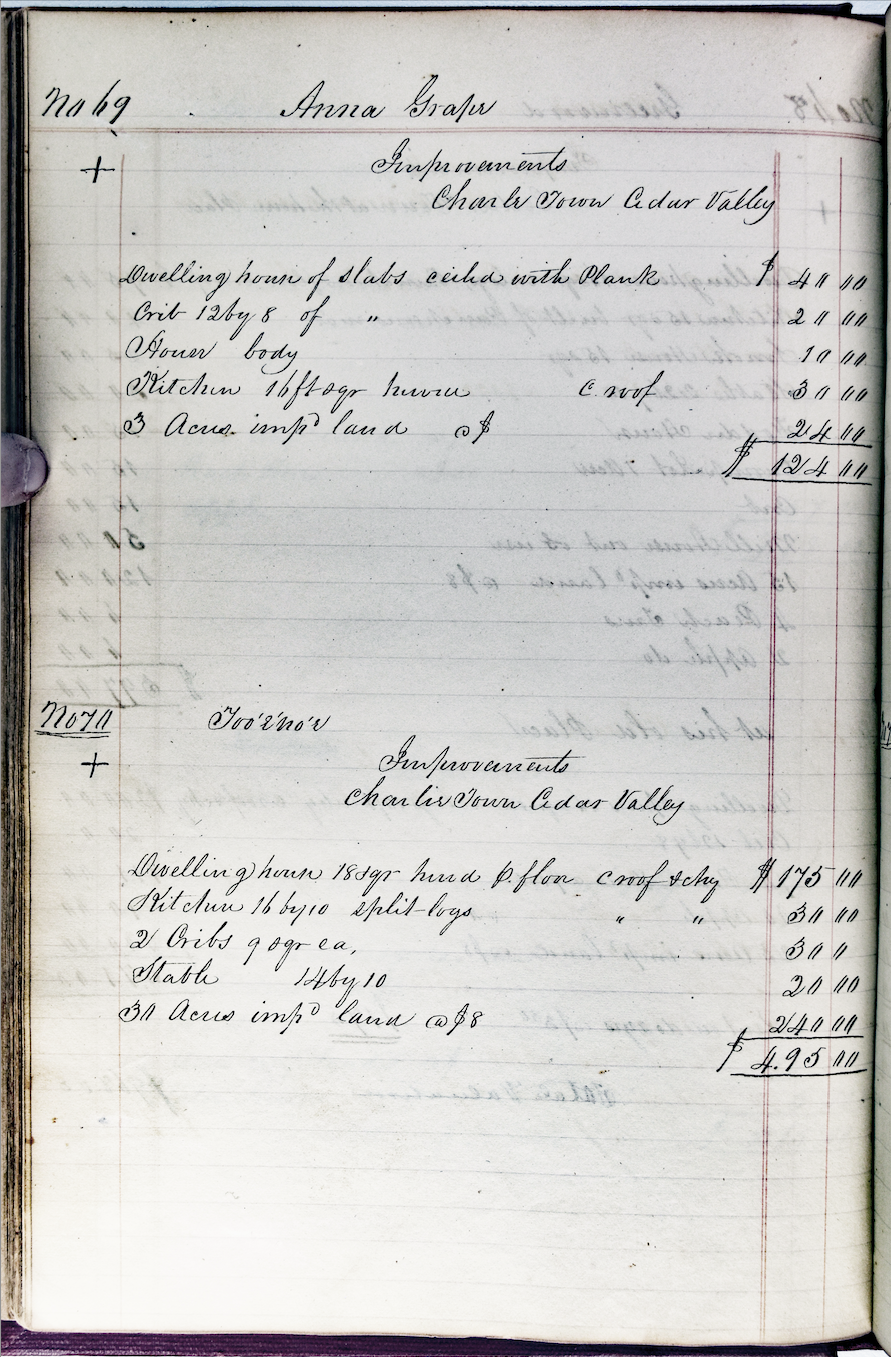 No 69 Anna Grape
+ Improvements
Charle Town Cedar Valley
Dwelling house of slabs ceiled with Plank $ 40 00
Crib 12 by 8 of " 20 00
House body 10 00
Kitchen 16 ft sqr hewn C. roof 30 00
3 Acres imp<sup>d</sup> land @ $ 24 00
$ 124 00
No 70 Too'2'no'2
+ Improvements
Charlie Town Cedar Valley
Dwelling house 18 sqr hewd P. floor C roof & chy $ 175 00
Kitchen 16 by 10 split logs " " 30 00
2 Cribs 9 sqr ea, 30 0
Stable 14 by 10 20 00
30 Acres imp<sup>d</sup> land @ $8 240 00
$ 4.95 00